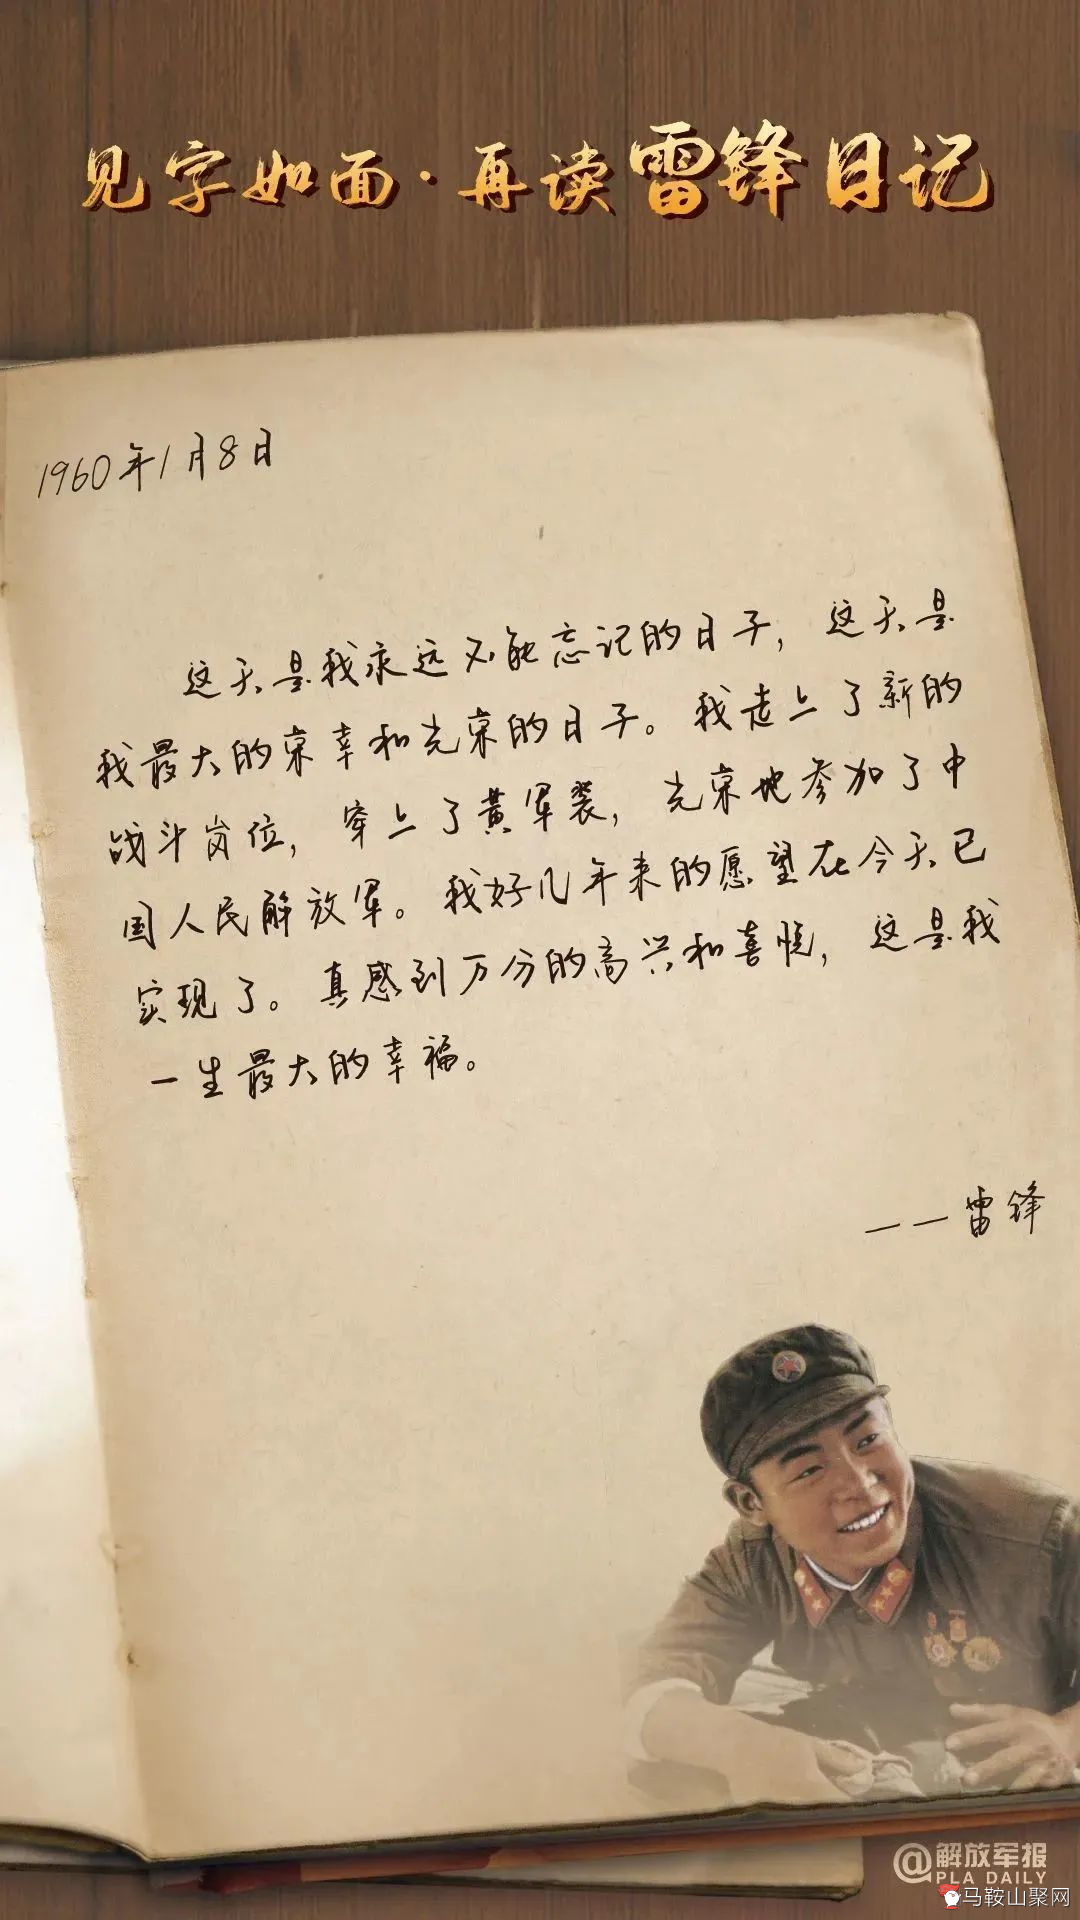 见字如面·再读雷锋日记
1960年1月8日
这天是我永远不能忘记的日子，这天是
我最大的荣幸和光荣的日子。我走上了新的
战斗岗位，穿上了黄军装，光荣地参加了中
国人民解放军。我好几年来的愿望在今天已
实现了。真感到万分的高兴和喜悦，这是我
一生最大的幸福。
——雷锋
@解放军报
PLA DAILY
马鞍山聚网